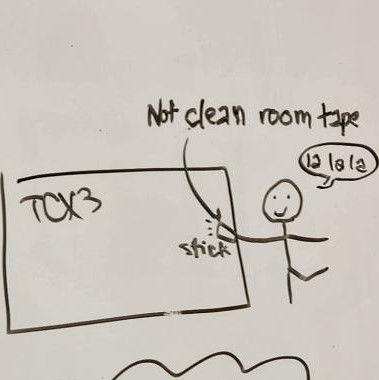 Not clean room tape
la la la
TCX3
stick